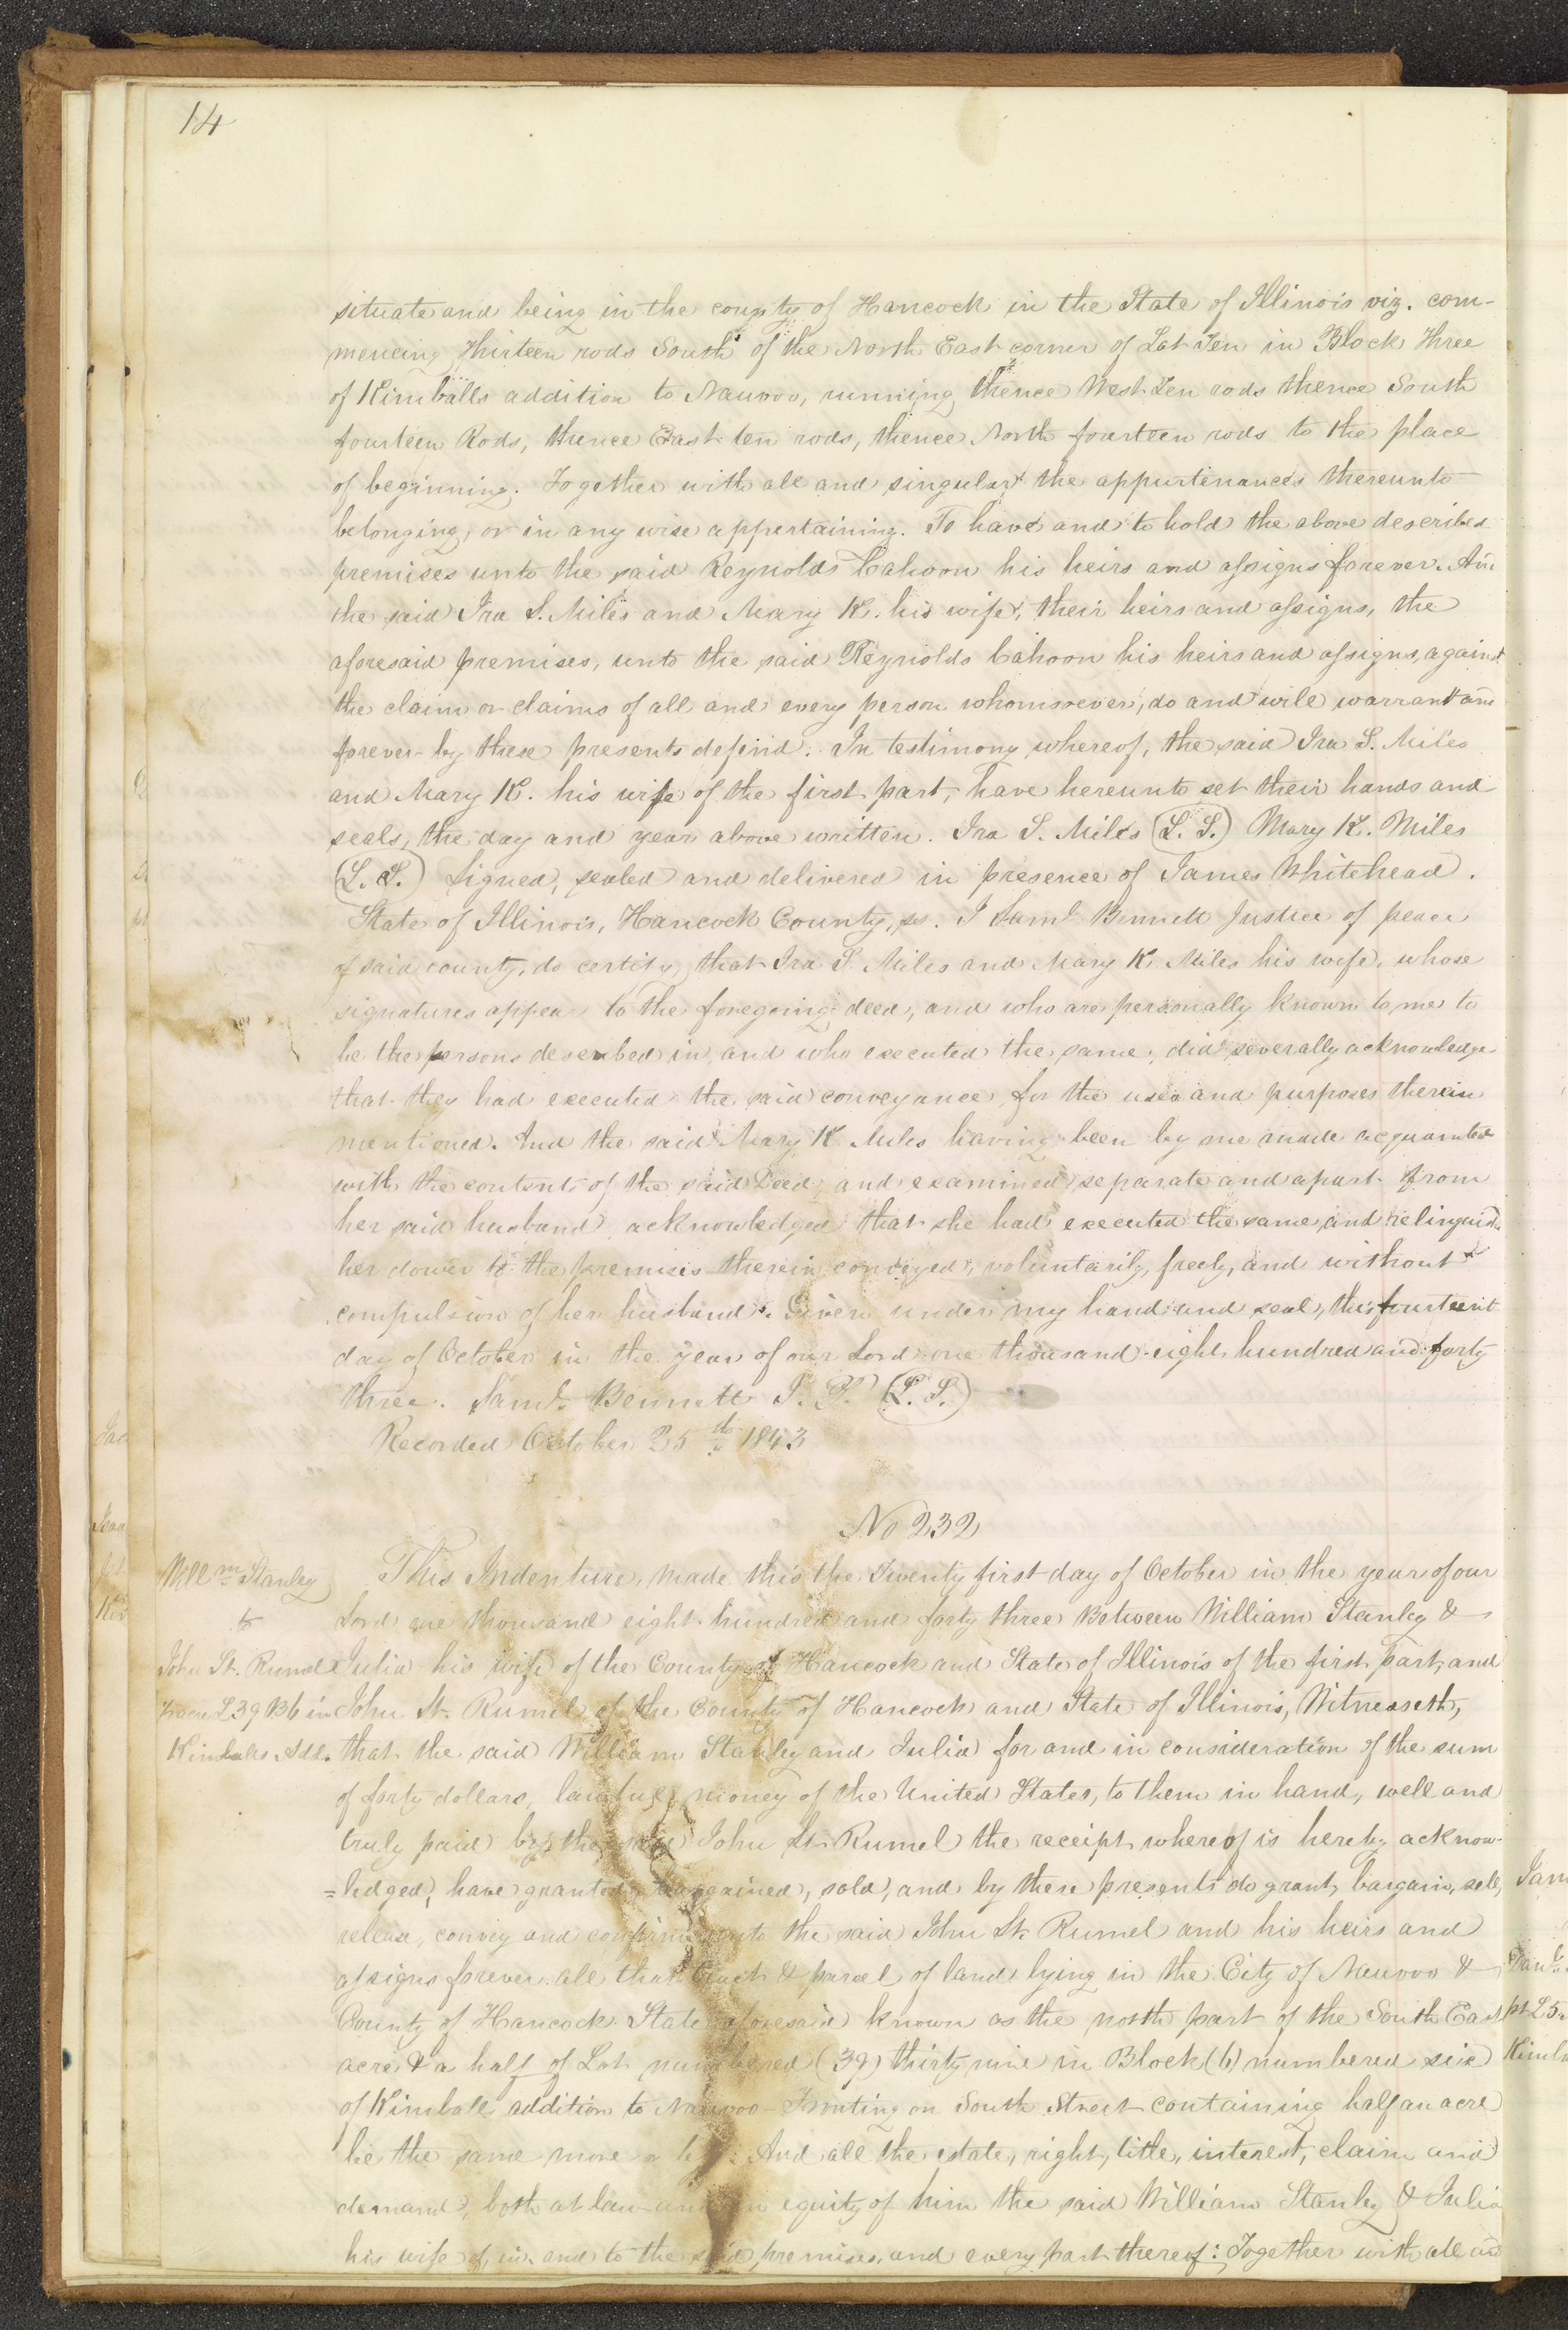 14
situate and being in the county of Hancock in the State of Illinois viz. com-
mencing Thirteen rods South of the North East corner of Lot Ten in Block Three
of Kimballs addition to Nauvoo, running thence West Ten rods thence South
fourteen Rods, thence East ten rods, thence North fourteen rods to the place
of beginning. Together with all and singular the appurtinances thereunto
belonging, or in any wise appertaining. To have and to hold the above described
premises unto the said Reynolds Cahoon his heirs and assigns forever. And
the said Ira S. Miles and Mary K. his wife, their heirs and assigns, the
aforesaid premises, unto the said Reynolds Cahoon his heirs and assigns, against
the claim or claims of all and every person whomsoever, do and will warrant and
forever by these presents defend. In testimony whereof, the said Ira S. Miles
and Mary K. his wife of the first part, have hereunto set their hands and
seals, the day and year above written. Ira S. Miles (L. S.) Mary K. Miles
(L. S.) Signed, sealed and delivered in presence of James Whitehead.
State of Illinois, Hancock County, ss. I Saml Bennett Justice of peace
of said county, do certify, that Ira S. Miles and Mary K Miles his wife, whose
signatures appear to the foregoing deed, and who are personally known to me to
be the persons described in, and who executed the same, did severally acknowledge
that they had executed the said conveyance, for the uses and purposes therein
mentioned. And the said Mary K Miles having been by me made acquainted
with the contents of the said Deed, and examined separate and apart from
her said husband, acknowledged that she had executed the same, and relinquish
her dower to the premises therein conveyed, voluntarily, freely, and without
compulsion of her husband. Given under my hand and seal, this fourteent
day of October in the year of our Lord one thousand eight hundred and forty
three. Saml. Bennett J. P. (L. S.)
Recorded October 25th 1843
No 232
Willm Stanley
to
John St. Rumel
L 39 B 6 in
Kimballs Add.
This Indenture, made this the Twenty first day of October in the year of our
Lord one thousand eight hundred and forty three Between William Stanley &
Julia his wife of the County of Hancock and State of Illinois of the first part, and
John St. Rumel of the County of Hancock and State of Illinois, Witnesseth,
that the said William Stanley and Julia for and in consideration of the sum
of forty dollars, lawful money of the United States, to them in hand, well and
truly paid by the said John St. Rumel the receipt whereof is hereby acknow-
=ledged, have granted, bargained, sold, and by these presents do grant, bargain, sell,
release, convey and confirm unto the said John St. Rumel and his heirs and
assigns forever all that tract & parcel of land lying in the City of Nauvoo &
County of Hancock State aforesaid known as the north part of the South East
acre & a half of Lot numbered (39) thirty nine in Block (6) numbered six
of Kimballs addition to Nauvoo - Fronting on South Street containing half an acre
be the same more or less. And all the estate, right, title, interest, claim and
demand, both at law and in equity of him the said William Stanley & Julia
his wife of, in, and to the said premises, and every part thereof: Together with all and